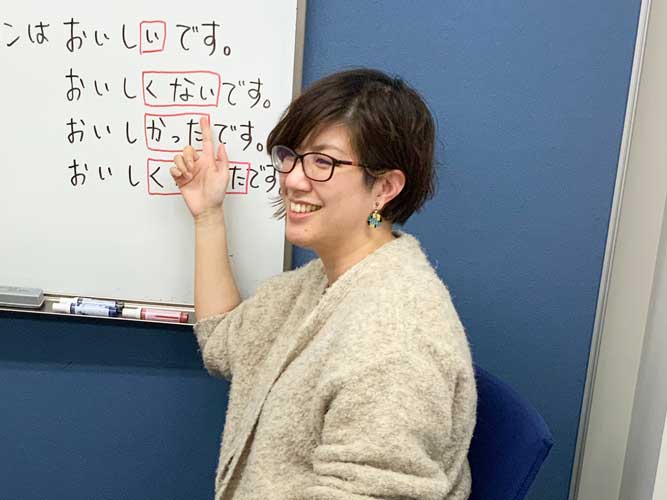 ンは おいしいです。
おいしくないです。
おいしかったです。
おいしく たです